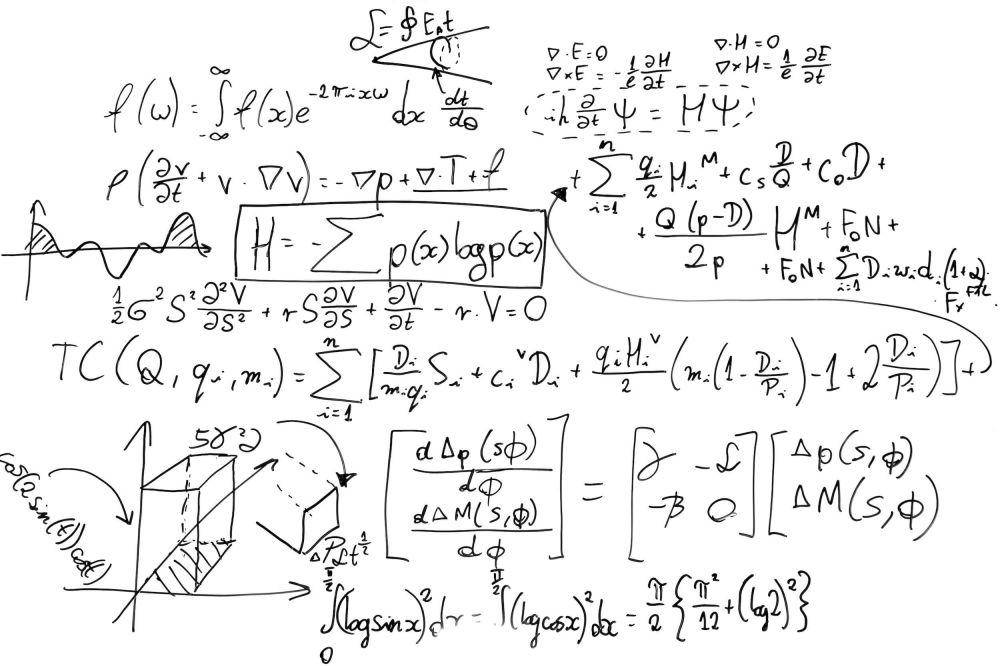 ℒ = ∮ E, t
∇·E=0 ∇·H=0
∇×E = -1/e ∂H/∂t ∇×H = 1/e ∂E/∂t
f(ω) = ∫_{-∞}^{∞} f(x)e^{-2πixω} dx dt/dθ
iħ ∂/∂t Ψ = HΨ
ρ(∂v/∂t + v·∇v) = -∇p + ∇·T + f
+ ∑_{i=1}^{n} q_i/2 H_i^M + c_s D/Q + c_o D +
+ Q(p-D)/2p H^M + F_o N +
+ F_o N + ∑_{i=1}^{n} D_i w_i d_i (1+α)
H = -∑ p(x) log p(x)
1/2 σ² S² ∂²V/∂S² + rS ∂V/∂S + ∂V/∂t - r·V = 0
TC(Q, q_i, m_i) = ∑_{i=1}^{n} [D_i/(m_i q_i) S_i + c_i^v D_i + q_i H_i^v/2 (m_i(1 - D_i/P_i) - 1 + 2 D_i/P_i)] +
5γ²∂
cos(2sin(t)) cost
ΔPℒt^{1/2}
[dΔp(sϕ)/dϕ
dΔM(s,ϕ)/dϕ] = [γ -ℒ
-β 0] [Δp(s,ϕ)
ΔM(s,ϕ)]
∫_0^{π/2} (log sin x)² dx = ∫^{π/2} (log cos x)² dx = π/2 {π²/12 + (log 2)²}